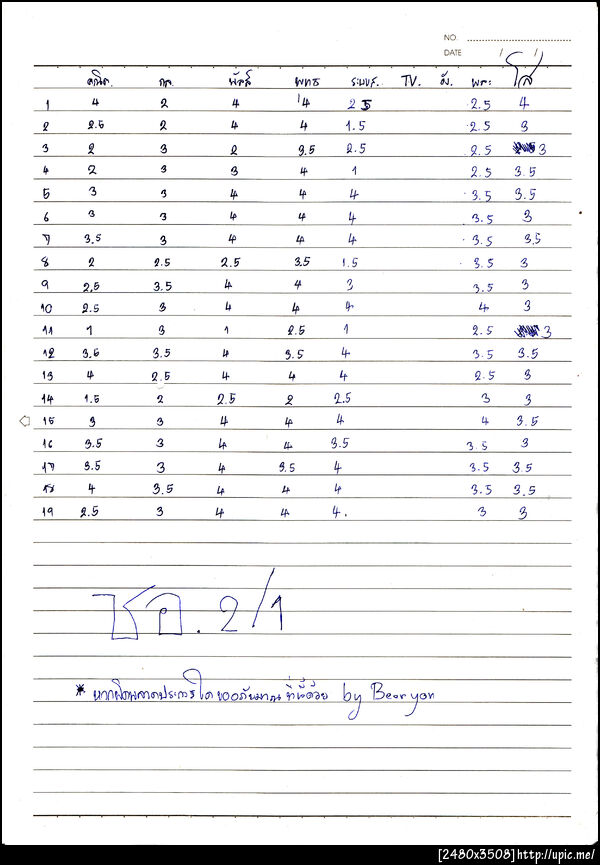 NO.
DATE / /
คณิต. กล. พัลส์ พุทธ ระบบส. TV. อัง. พละ โส
1 4 2 4 4 2.5 2.5 4
2 2.5 2 4 4 1.5 2.5 3
3 2 3 2 3.5 2.5 2.5 3
4 2 3 3 4 1 2.5 3.5
5 3 3 4 4 4 3.5 3.5
6 3 3 4 4 4 3.5 3
7 3.5 3 4 4 4 3.5 3.5
8 2 2.5 2.5 3.5 1.5 3.5 3
9 2.5 3.5 4 4 3 3.5 3
10 2.5 3 4 4 4 4 3
11 1 3 1 2.5 1 2.5 3
12 3.5 3.5 4 3.5 4 3.5 3.5
13 4 2.5 4 4 4 2.5 3
14 1.5 2 2.5 2 2.5 3 3
15 3 3 4 4 4 4 3.5
16 3.5 3 4 4 3.5 3.5 3
17 3.5 3 4 3.5 4 3.5 3.5
18 4 3.5 4 4 4 3.5 3.5
19 2.5 3 4 4 4. 3 3
ชอ. 2/1
* หากผิดพลาดประการใด ขออภัยมา ณ ที่นี้ด้วย by Bearyon
[2480x3508]http://upic.me/